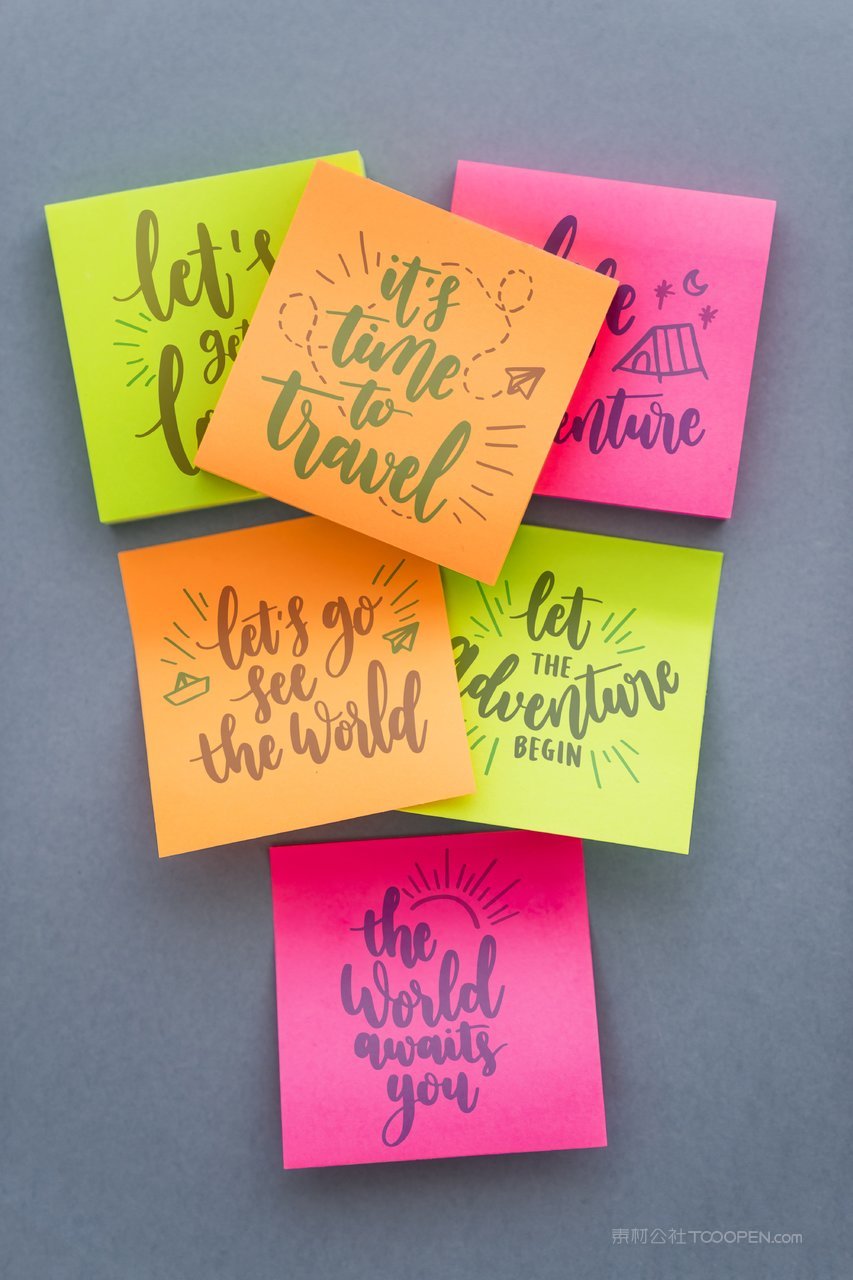 let's
get
it's
time
to
travel
enture
let's go
see
the World
let
THE
adventure
BEGIN
the
World
awaits
you
素材公社TOOOPEN.com